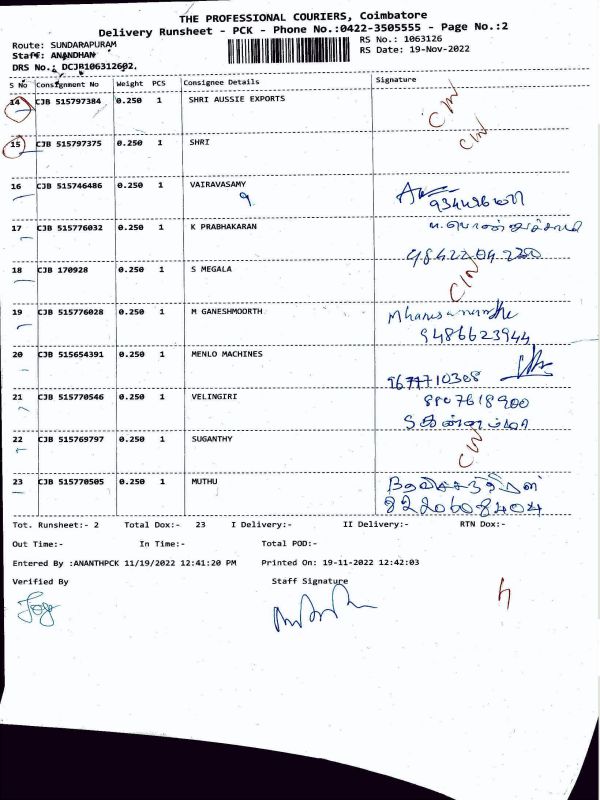 THE PROFESSIONAL COURIERS, Coimbatore
Delivery Runsheet - PCK - Phone No.:0422-3505555 - Page No.:2
Route: SUNDARAPURAM
RS No.: 1063126
Staff: ANANDHAN
RS Date: 19-Nov-2022
DRS No.: DCJB106312602.
S No Consignment No Weight PCS Consignee Details Signature
14 CJB 515797384 0.250 1 SHRI AUSSIE EXPORTS C/N
15 CJB 515797375 0.250 1 SHRI C/N
16 CJB 515746486 0.250 1 VAIRAVASAMY
9
17 CJB 515776032 0.250 1 K PRABHAKARAN
18 CJB 170928 0.250 1 S MEGALA C/N
19 CJB 515776028 0.250 1 M GANESHMOORTH
9486623944
20 CJB 515654391 0.250 1 MENLO MACHINES
21 CJB 515770546 0.250 1 VELINGIRI 8807618900
22 CJB 515769797 0.250 1 SUGANTHY C/N
23 CJB 515770505 0.250 1 MUTHU
8220608404
Tot. Runsheet:- 2 Total Dox:- 23 I Delivery:- II Delivery:- RTN Dox:-
Out Time:- In Time:- Total POD:-
Entered By :ANANTHPCK 11/19/2022 12:41:20 PM Printed On: 19-11-2022 12:42:03
Verified By Staff Signature